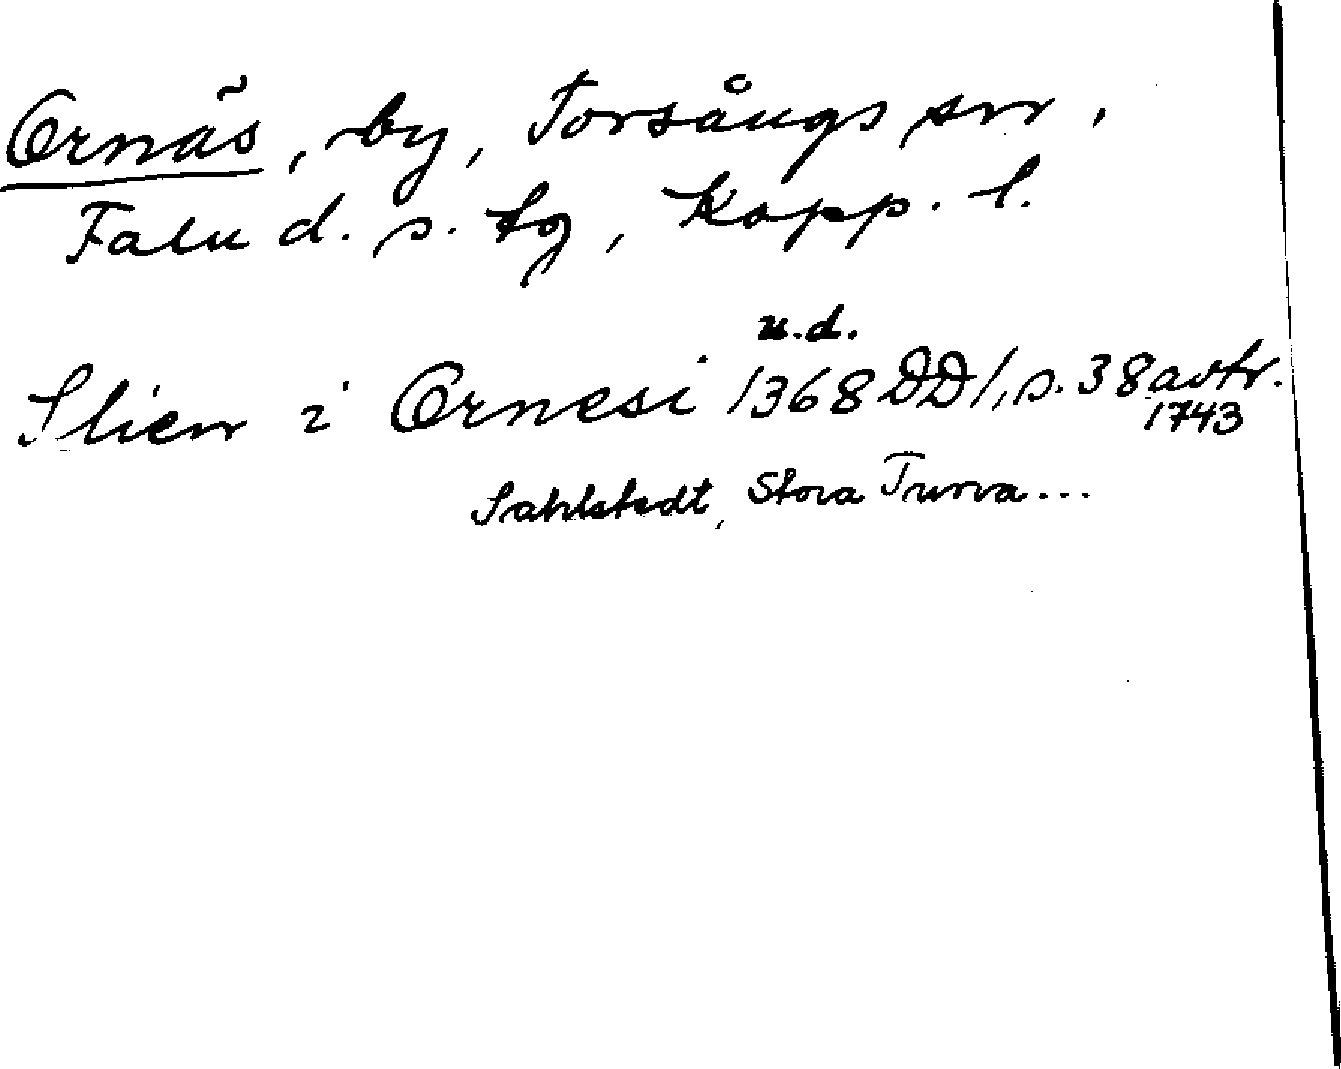 Ornäs, by, Torsångs sn,
Falu d. s. tg, Kopp. l.
u.d.
Slien i Ornesi 1368 DD1, s. 38 avtr.
1743
Sahlstedt, Stora Tuna...